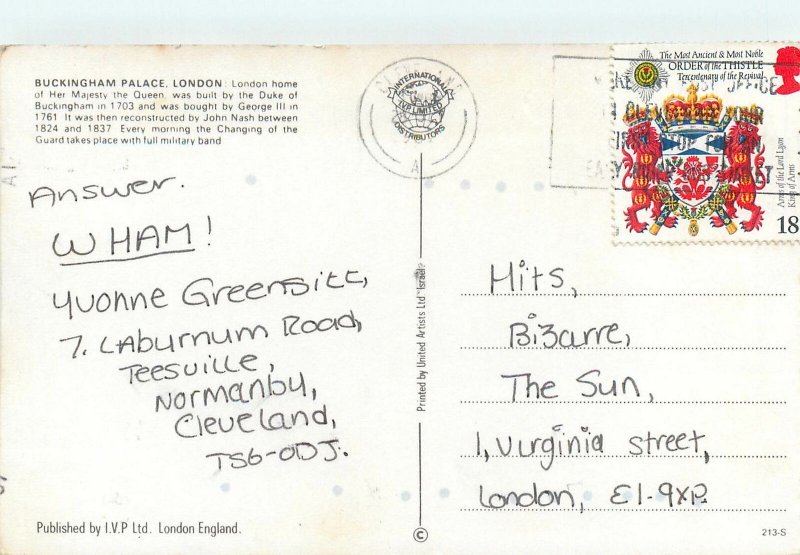 BUCKINGHAM PALACE, LONDON: London home
of Her Majesty the Queen, was built by the Duke of
Buckingham in 1703 and was bought by George III in
1761 It was then reconstructed by John Nash between
1824 and 1837 Every morning the Changing of the
Guard takes place with full military band
INTERNATIONAL
I.V.P. LIMITED
DISTRIBUTORS
The Most Ancient & Most Noble
ORDER of the THISTLE
Tercentenary of the Revival
Arms of the Lord Lyon
King of Arms
18
Answer.
WHAM!
Yvonne Greensitt,
7. Laburnum Road,
Teesville,
Normanby,
Cleveland,
TS6-0DJ.
Printed by United Artists Ltd Israel
Hits,
Bizarre,
The Sun,
1, Virginia street,
London, E1-9XP.
Published by I.V.P Ltd. London England.
©
213-S